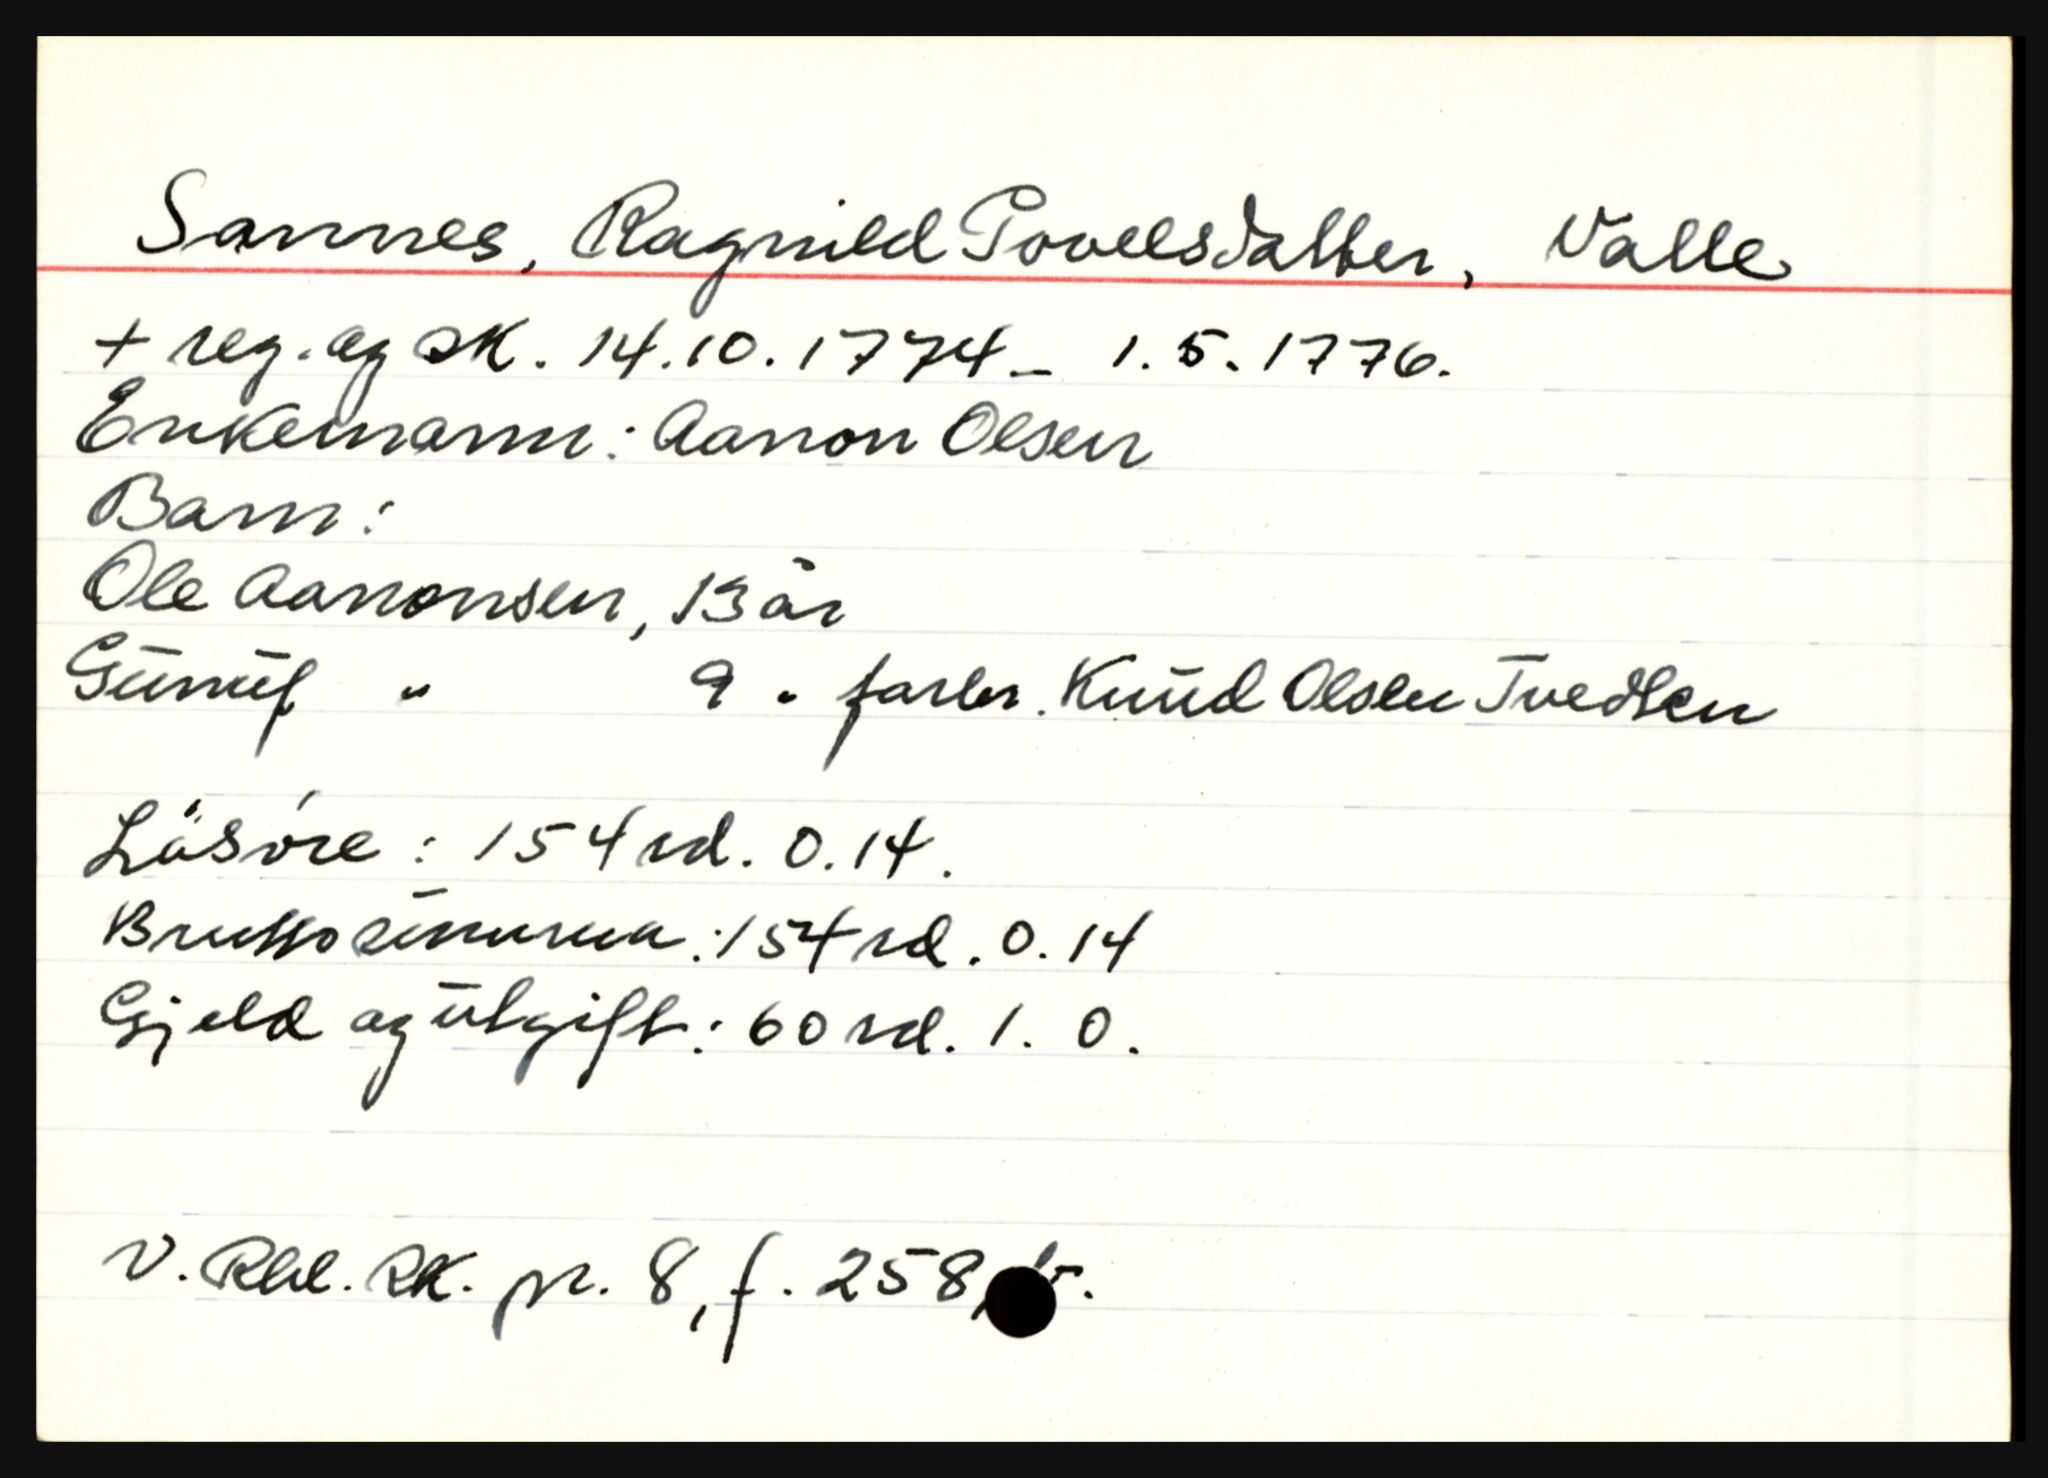 Sannes, Ragnild Povelsdatter, Valle
+ reg. og sk. 14.10.1774 - 1.5.1776.
Enkemann: Aanon Olsen
Barn:
Ole Aanonsen, 13 år
Gunuf " 9 " farbr. Knud Olsen Tvedten
Lösöre: 154 rd. 0. 14.
Bruttosumma: 154 rd. 0. 14
Gjeld og utgift: 60 rd. 1. 0.
V. Rbl. RK. pr. 8, f. 258,